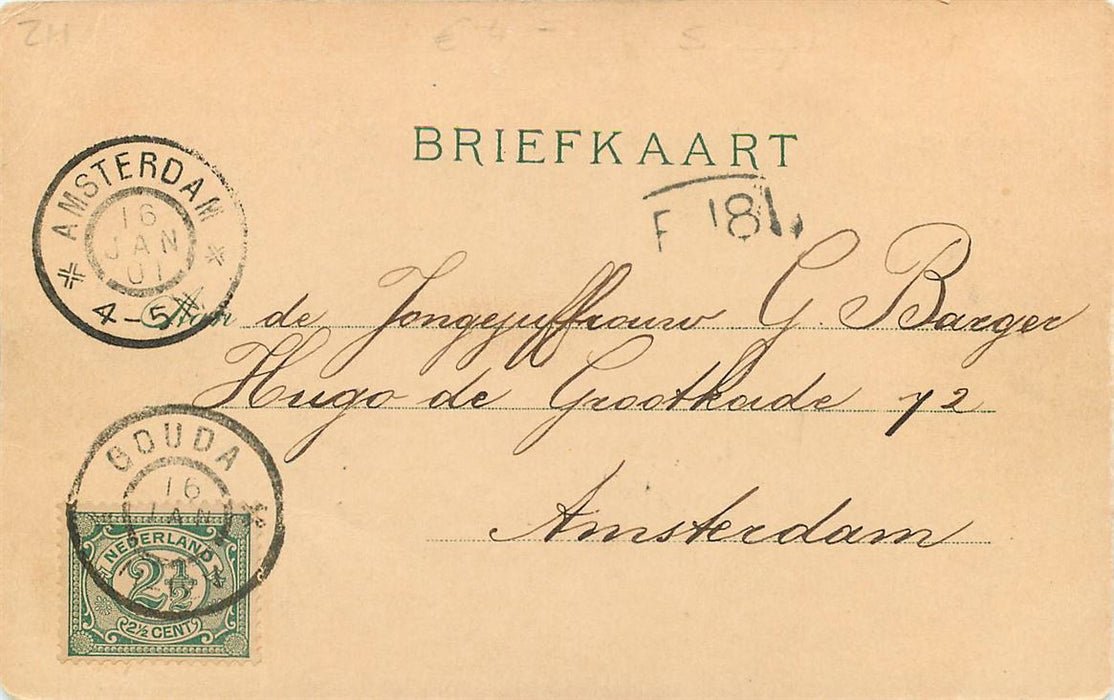 ZH
BRIEFKAART
AMSTERDAM
16
JAN
01
4-5N
F 181.
Aan de Jongejuffrouw G. Barger
Hugo de Grootkade 72
Amsterdam
GOUDA
16
JAN
NEDERLAND
2½
2½ CENT